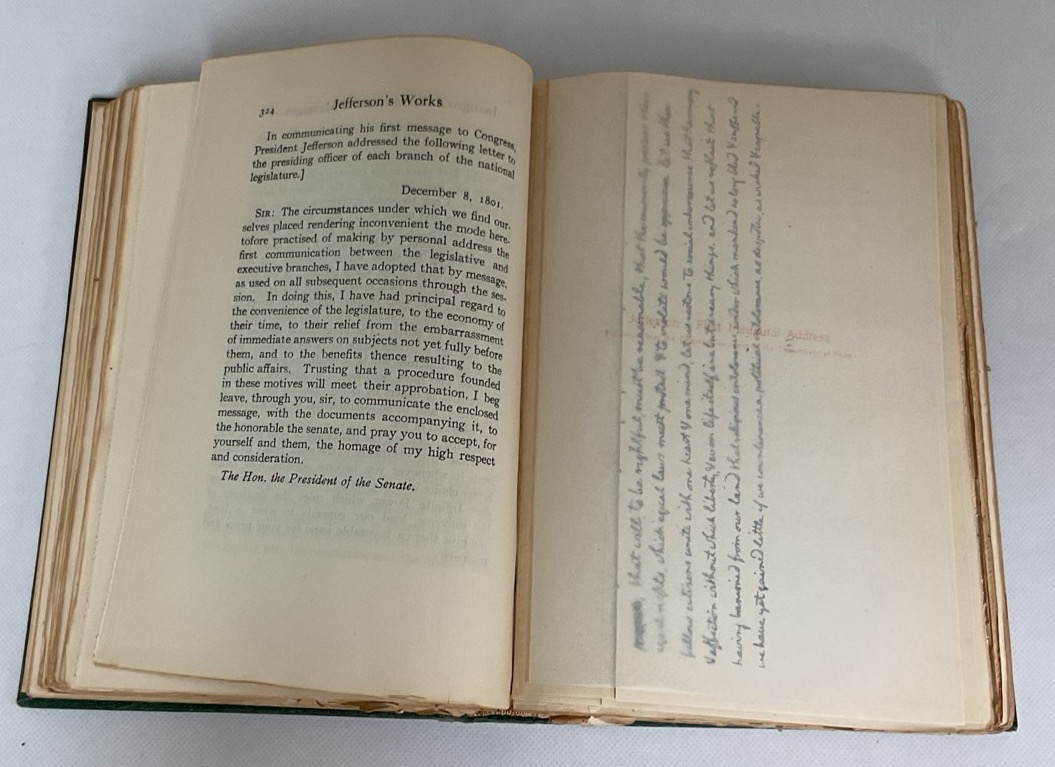 324
Jefferson's Works
In communicating his first message to Congress,
President Jefferson addressed the following letter to
the presiding officer of each branch of the national
legislature.]
December 8, 1801.
SIR: The circumstances under which we find our-
selves placed rendering inconvenient the mode here-
tofore practised of making by personal address the
first communication between the legislative and
executive branches, I have adopted that by message,
as used on all subsequent occasions through the ses-
sion. In doing this, I have had principal regard to
the convenience of the legislature, to the economy of
their time, to their relief from the embarrassment
of immediate answers on subjects not yet fully before
them, and to the benefits thence resulting to the
public affairs. Trusting that a procedure founded
in these motives will meet their approbation, I beg
leave, through you, sir, to communicate the enclosed
message, with the documents accompanying it, to
the honorable the senate, and pray you to accept, for
yourself and them, the homage of my high respect
and consideration.
The Hon. the President of the Senate.
that will to be rightful must be reasonable, that the minority possess their
equal rights, which equal laws must protect & to violate would be oppression. let us then
fellow citizens unite with one heart & one mind, let us restore to social intercourse that harmony
& affection without which liberty, & even life itself are but dreary things. and let us reflect that
having banished from our land that religious intolerance under which mankind so long bled & suffered
we have yet gained little if we countenance a political intolerance, as despotic, as wicked &
First Inaugural Address